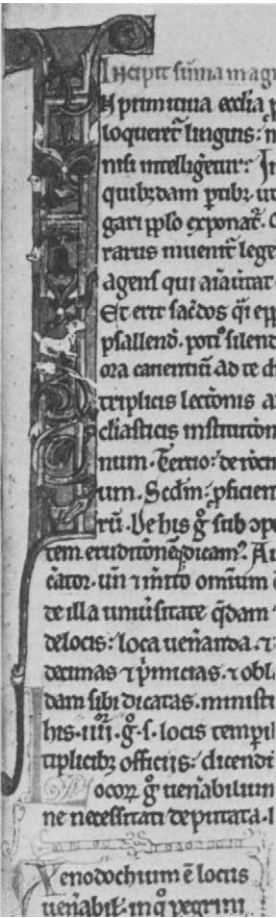 Incipit sūma mag
N primitiua eccl̄ia p
loqueret̄ linguis: n
nisi intelligerūt: In
quibꝫdam ptibꝫ ut
gari pplo exponat̄.
rarus inuenit̄ lege
agens qui
Et erit sac̄dos q̄i ep
psallend̄. poti᷒ silend
ora canentiū ad te
triplicis lectōnis a
cliasticis institutōn
num. Tertio: de
um. Sc̄dm: pficien
rū. De his g̊ sub ope
tem eruditōnēqꝫ dicam᷒. Au
cator. un̄ ⁊ īmīto omīum
te illa uniūsitate q̄dam
de locis: loca uenānda. ⁊
decimas ⁊ p̄micias. ⁊ obl
dam sibi dicatas. ministi
his. iiii. g̊. s. locis tempi
tiplicibꝫ officiis: dicendi
ocoꝝ g̊ uenabilium
ne necessitati deputata.
Xenodochium ē locus
uenabil. in q̊ pegrini